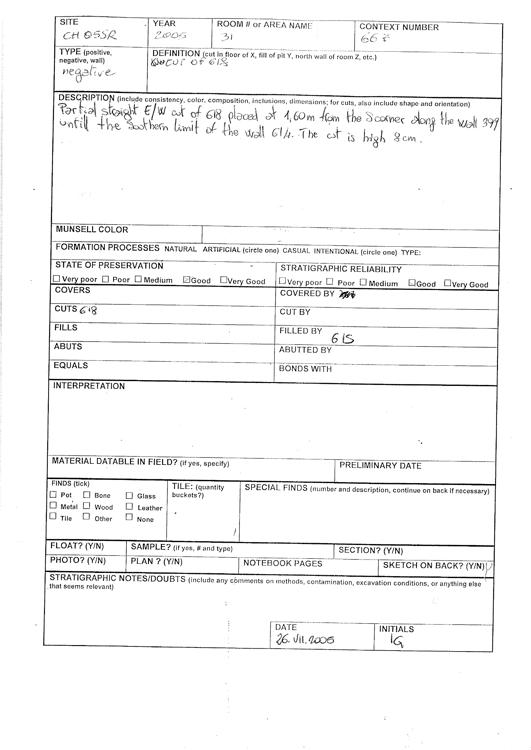 SITE YEAR ROOM # or AREA NAME CONTEXT NUMBER
CH 05SR 2005 31 668
TYPE (positive, negative, wall) DEFINITION (cut in floor of X, fill of pit Y, north wall of room Z, etc.)
negative CUT OF 618
DESCRIPTION (include consistency, color, composition, inclusions, dimensions; for cuts, also include shape and orientation)
Partial straight E/W cut of 618 placed at 1,60m from the Scorner along the wall 399
untill the Southern limit of the wall 614. The cut is high 8cm.
MUNSELL COLOR
FORMATION PROCESSES NATURAL ARTIFICIAL (circle one) CASUAL INTENTIONAL (circle one) TYPE:
STATE OF PRESERVATION STRATIGRAPHIC RELIABILITY
☐Very poor ☐Poor ☐Medium ☑Good ☐Very Good ☐Very poor ☐Poor ☐Medium ☐Good ☐Very Good
COVERS COVERED BY
CUTS 618 CUT BY
FILLS FILLED BY 615
ABUTS ABUTTED BY
EQUALS BONDS WITH
INTERPRETATION
MATERIAL DATABLE IN FIELD? (if yes, specify) PRELIMINARY DATE
FINDS (tick) TILE: (quantity buckets?) SPECIAL FINDS (number and description, continue on back if necessary)
☐ Pot ☐ Bone ☐ Glass
☐ Metal ☐ Wood ☐ Leather
☐ Tile ☐ Other ☐ None
FLOAT? (Y/N) SAMPLE? (if yes, # and type) SECTION? (Y/N)
PHOTO? (Y/N) PLAN ? (Y/N) NOTEBOOK PAGES SKETCH ON BACK? (Y/N)
STRATIGRAPHIC NOTES/DOUBTS (include any comments on methods, contamination, excavation conditions, or anything else
that seems relevant)
DATE INITIALS
26.VII.2005 IG